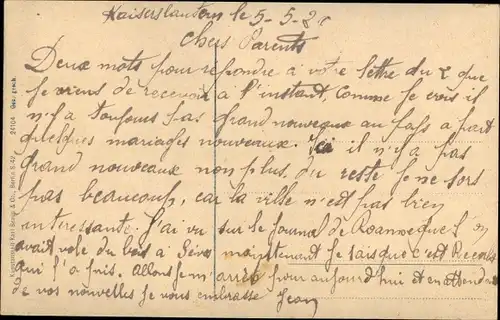 Kaiserslautern le 5-5-2
Chers Parents
Deux mots pour répondre à votre lettre du 2 que
je viens de recevoir à l'instant, comme je crois il
n'y a toujours pas grand nouveau au pays à part
quelques mariages nouveaux. Ici il n'y a pas
grand nouveaux non plus, du reste je ne sors
pas beaucoup, car la ville n'est pas bien
interessante. J'ai vu sur le journal de Roanne que l'on
avait volé du bois à maintenant je sais que c'est
qui l'a pris. Allons je m'arrète pour aujourd'hui et en attendant
de vos nouvelles je vous embrasse Jean
24104 Ges. gesch.